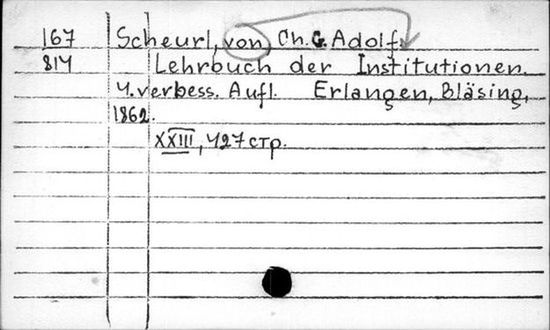 167 Scheurl, von, Ch. G. Adolf.
814 Lehrbuch der Institutionen.
4. verbess. Aufl. Erlangen, Bläsing,
1862.
XXIII, 427 стр.